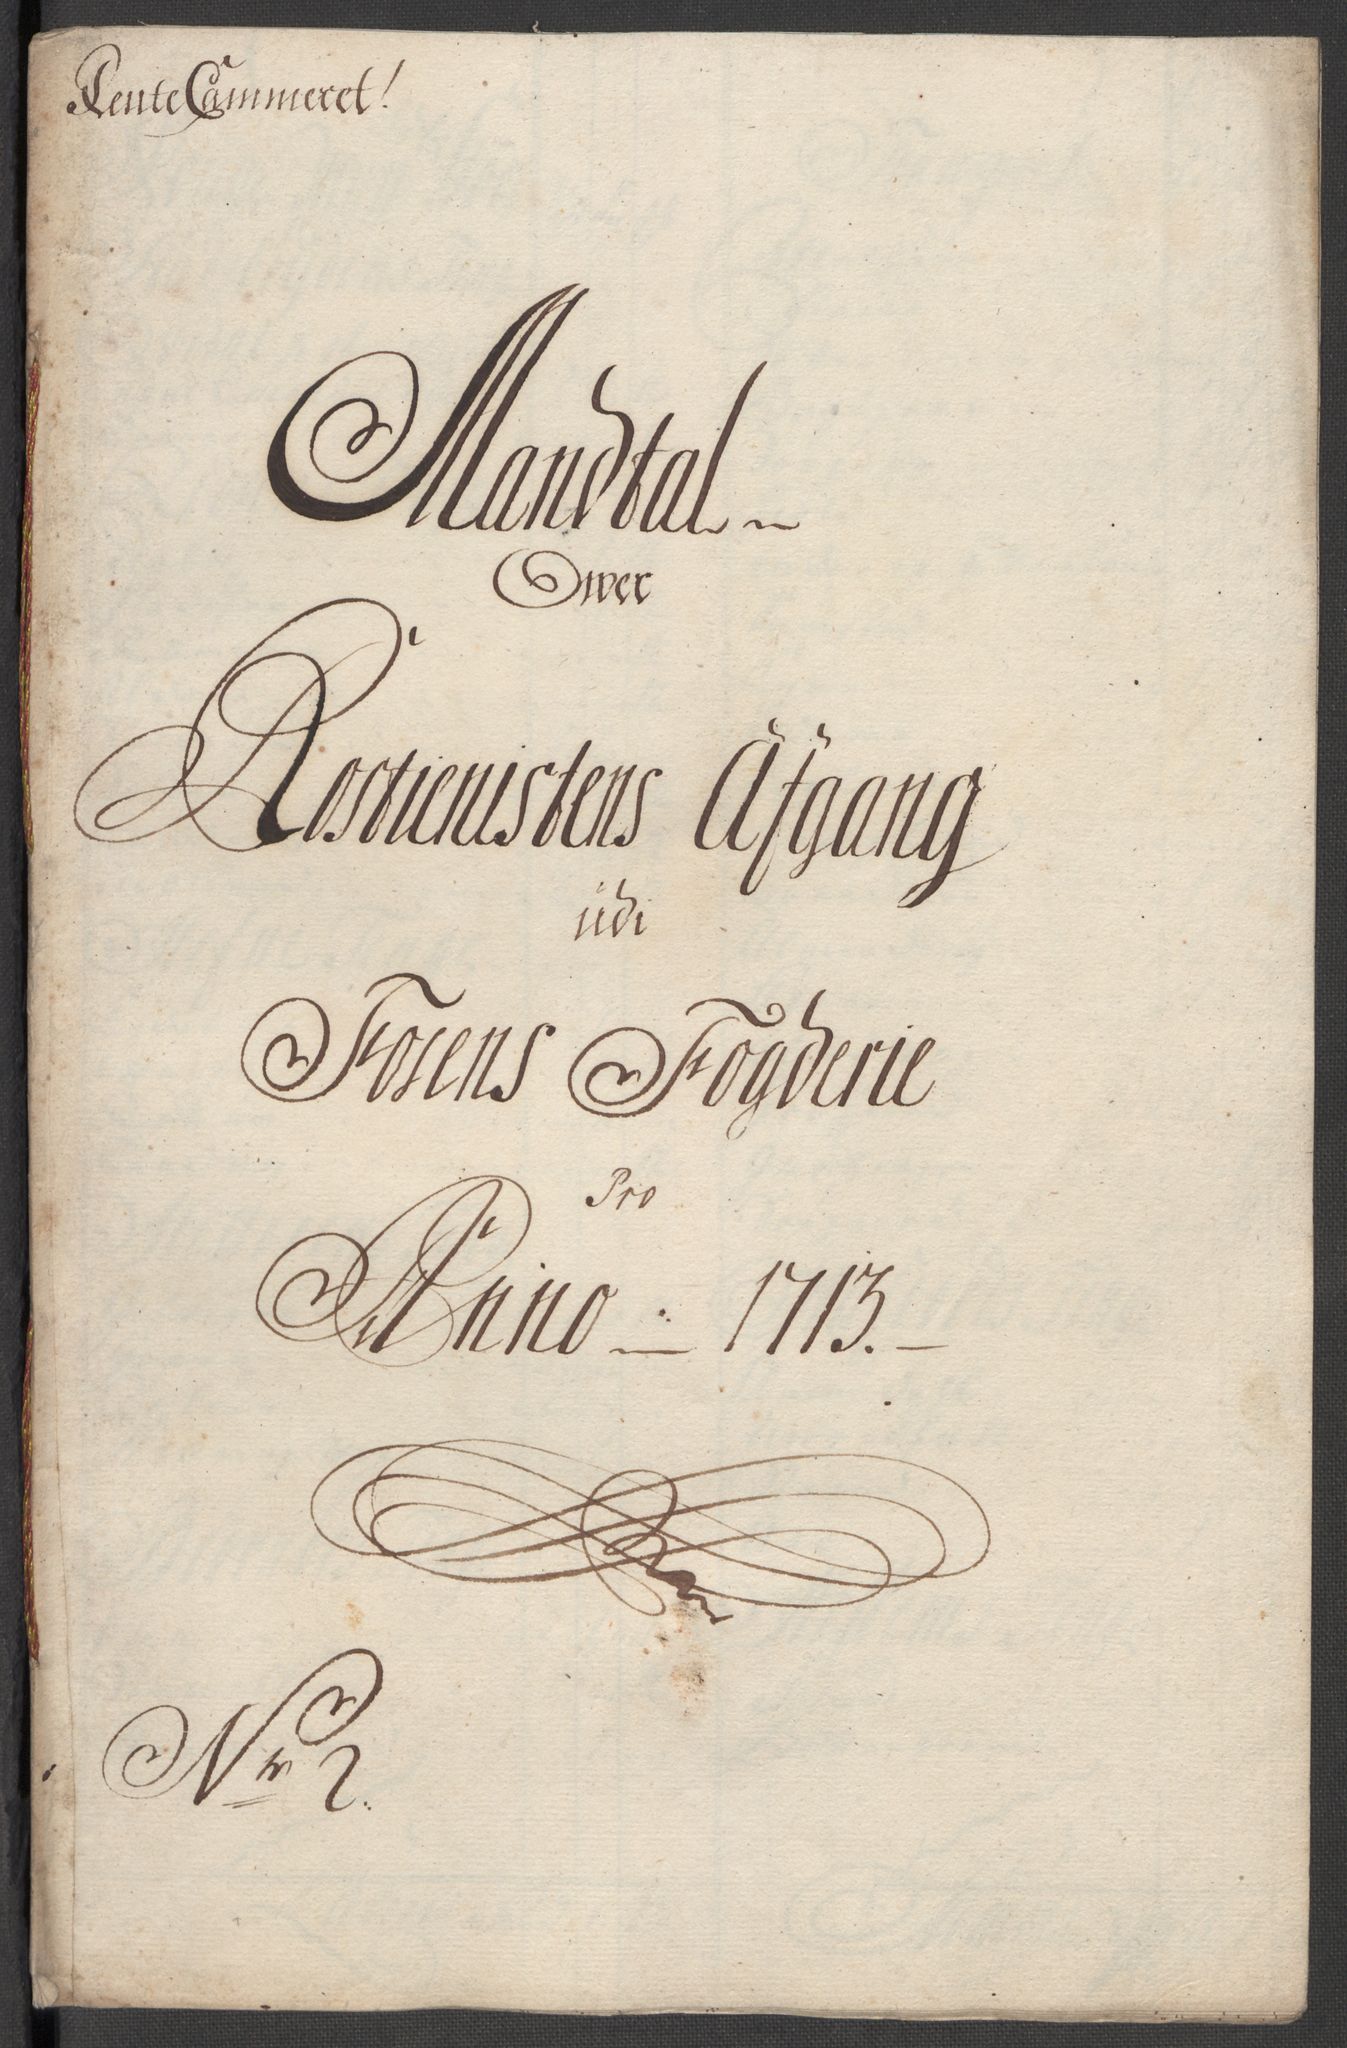 RenteCammeret!
Mandtal
Ower
Rostienistens Afgang
udi
Fosens Fogderie
Pro
Anno 1713.
Nr 2.